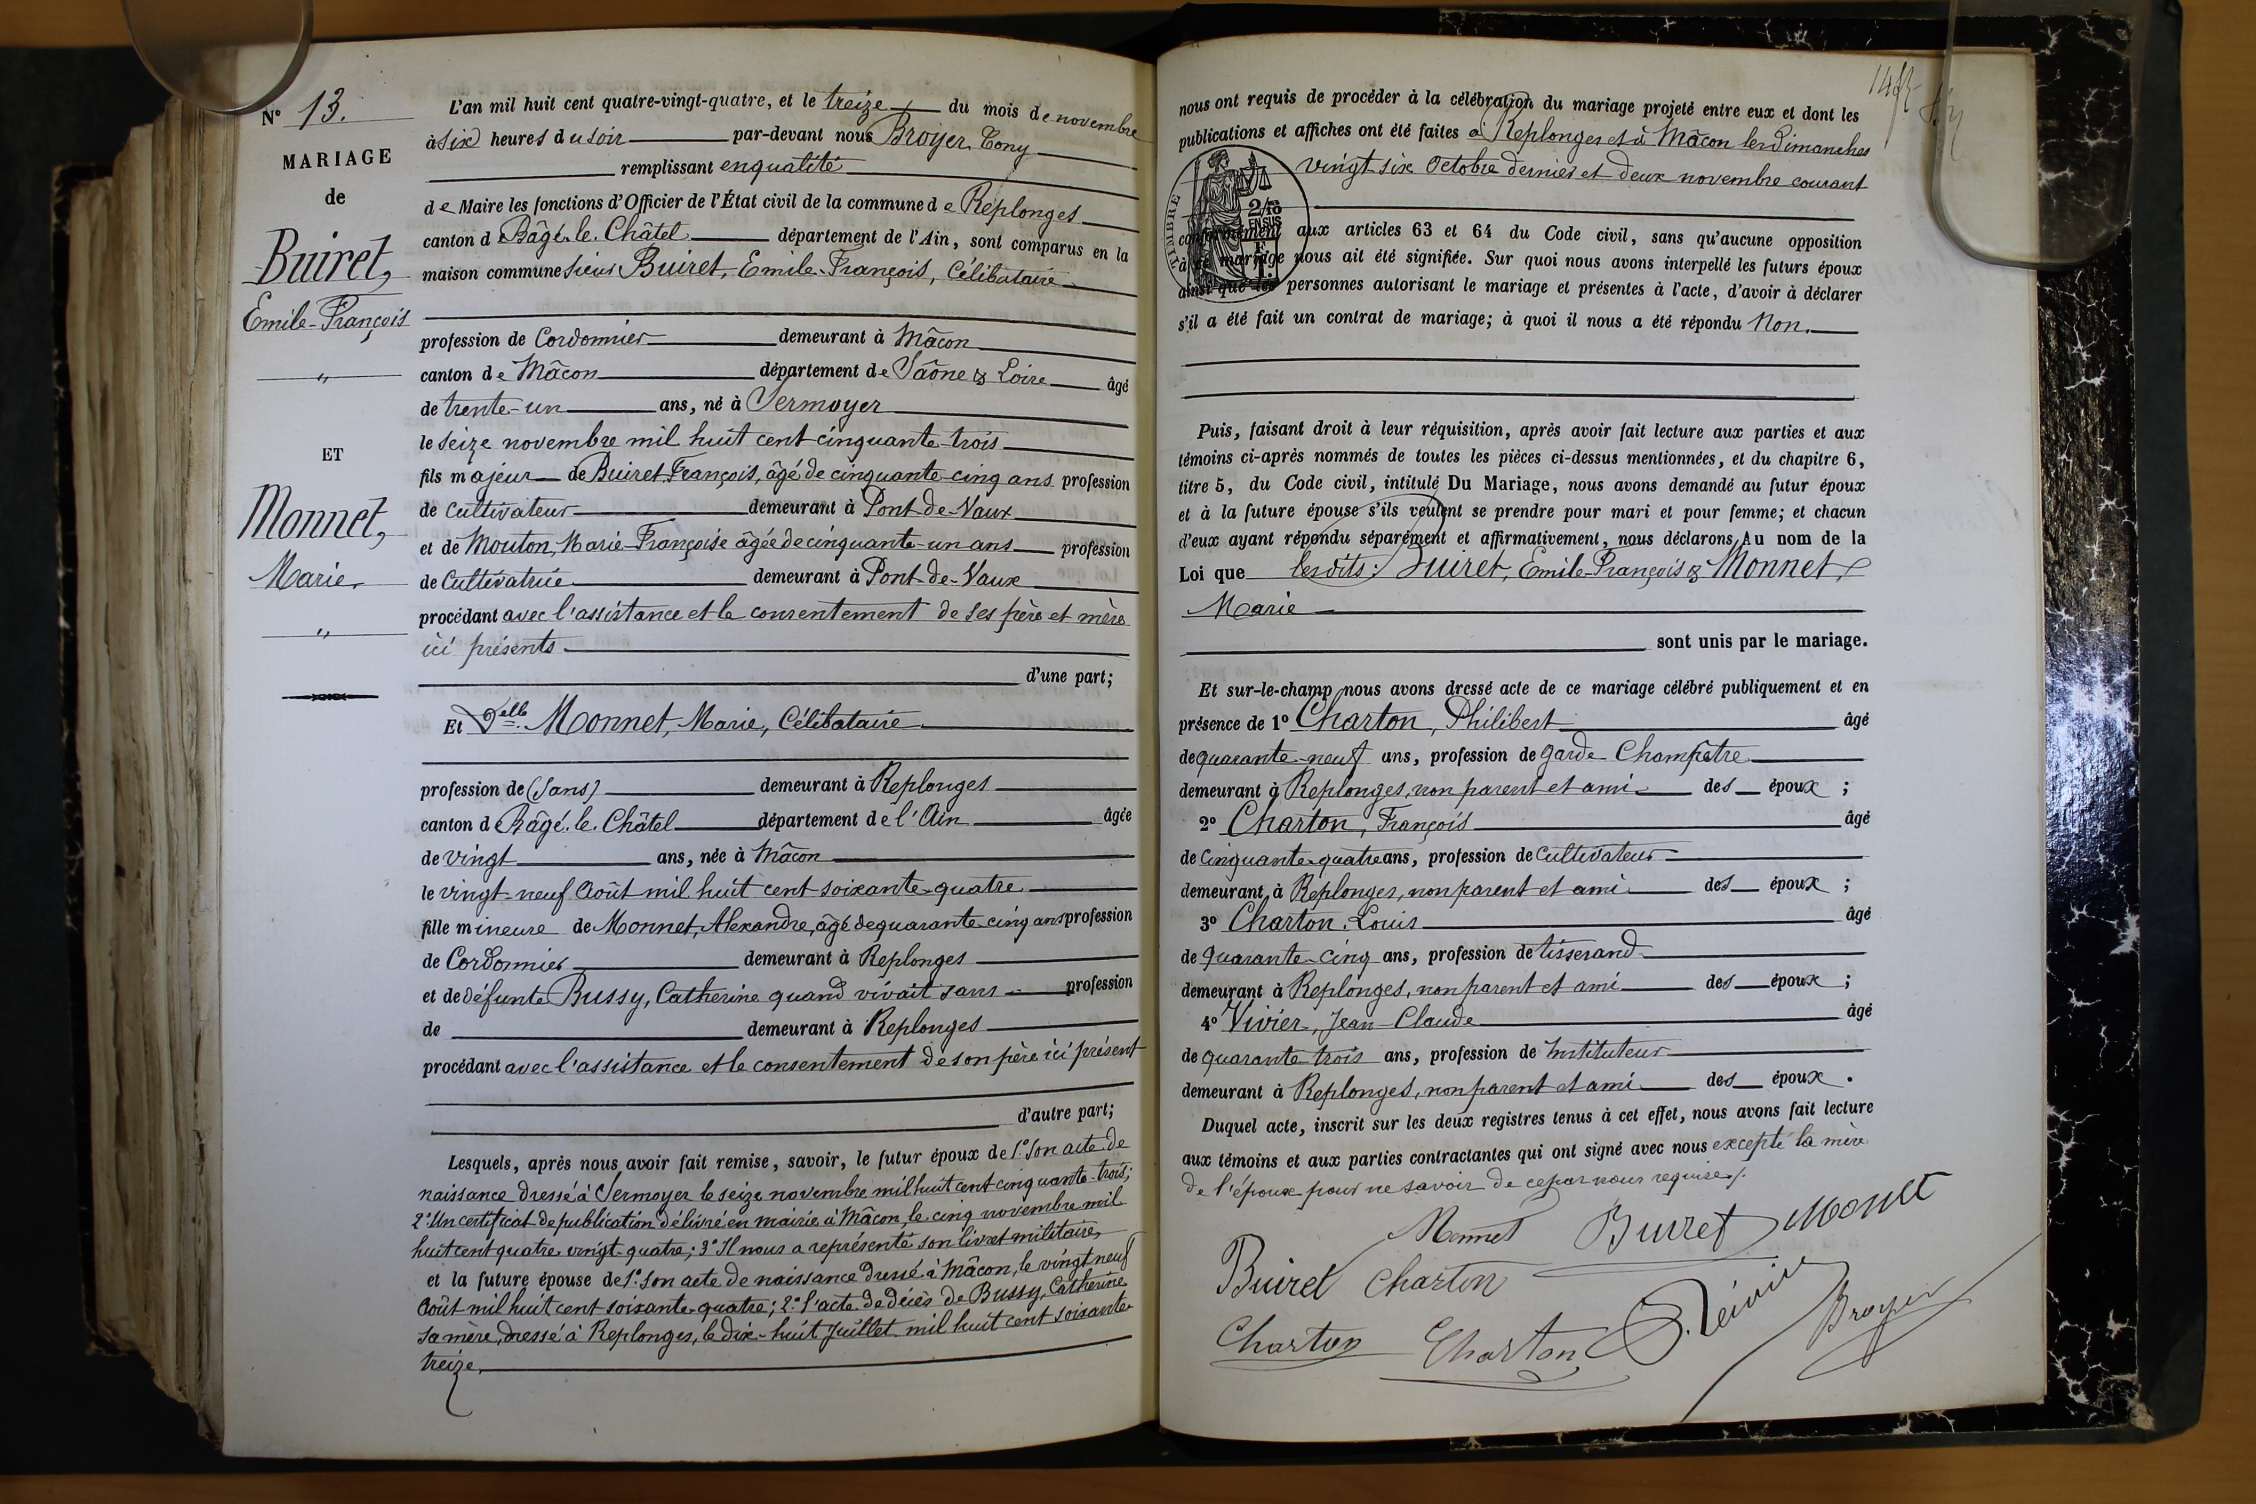 N° 13.
MARIAGE
de
Buiret,
Emile-François
"
ET
Monnet,
Marie.
"
L'an mil huit cent quatre-vingt-quatre, et le treize du mois de novembre
à six heures du soir par-devant nous Broyer Tony
remplissant en qualité
de Maire les fonctions d'Officier de l'État civil de la commune de Replonges
canton d Bâgé-le-Châtel département de l'Ain, sont comparus en la
maison commune sieur Buiret, Emile-François, Célibataire
profession de Cordonnier demeurant à Mâcon
canton de Mâcon département de Saône & Loire âgé
de trente-un ans, né à Sermoyer
le seize novembre mil huit cent cinquante-trois
fils majeur de Buiret François, âgé de cinquante-cinq ans profession
de cultivateur demeurant à Pont-de-Vaux
et de Mouton, Marie-Françoise âgée de cinquante-un ans profession
de Cultivatrice demeurant à Pont-de-Vaux
procédant avec l'assistance et le consentement de ses père et mère
ici présents
d'une part;
Et Delle Monnet, Marie, Célibataire
profession de (sans) demeurant à Replonges
canton d Bâgé-le-Châtel département de l'Ain âgée
de vingt ans, née à Mâcon
le vingt-neuf Août mil huit cent soixante-quatre
fille mineure de Monnet, Alexandre, âgé de quarante-cinq ans profession
de Cordonnier demeurant à Replonges
et de défunte Bussy, Catherine quand vivait sans profession
de demeurant à Replonges
procédant avec l'assistance et le consentement de son père ici présent
d'autre part;
Lesquels, après nous avoir fait remise, savoir, le futur époux de 1° Son acte de
naissance dressé à Sermoyer le seize novembre mil huit cent cinquante-trois;
2° Un certificat de publication délivré en mairie à Mâcon, le cinq novembre mil
huit cent quatre-vingt-quatre; 3° Il nous a représenté son livret militaire
et la future épouse de 1° Son acte de naissance dressé à Mâcon, le vingt neuf
Août mil huit cent soixante-quatre; 2° l'acte de décès de Bussy, Catherine
sa mère, dressé à Replonges, le dix-huit Juillet mil huit cent soixante-
treize.
nous ont requis de procéder à la célébration du mariage projeté entre eux et dont les
publications et affiches ont été faites à Replonges et à Mâcon les Dimanches
vingt six Octobre dernier et deux novembre courant
TIMBRE
2/10
EN SUS
conformément aux articles 63 et 64 du Code civil, sans qu'aucune opposition
à ce mariage nous ait été signifiée. Sur quoi nous avons interpellé les futurs époux
ainsi que les personnes autorisant le mariage et présentes à l'acte, d'avoir à déclarer
s'il a été fait un contrat de mariage; à quoi il nous a été répondu Non.
Puis, faisant droit à leur réquisition, après avoir fait lecture aux parties et aux
témoins ci-après nommés de toutes les pièces ci-dessus mentionnées, et du chapitre 6,
titre 5, du Code civil, intitulé Du Mariage, nous avons demandé au futur époux
et à la future épouse s'ils veulent se prendre pour mari et pour femme; et chacun
d'eux ayant répondu séparément et affirmativement, nous déclarons Au nom de la
Loi que lesdits: Buiret, Emile-François & Monnet,
Marie
sont unis par le mariage.
Et sur-le-champ nous avons dressé acte de ce mariage célébré publiquement et en
présence de 1° Charton, Philibert âgé
de quarante-neuf ans, profession de Garde-Champêtre
demeurant à Replonges, non parent et ami des époux ;
2° Charton, François âgé
de Cinquante-quatre ans, profession de Cultivateur
demeurant à Replonges, non parent et ami des époux ;
3° Charton, Louis âgé
de quarante-cinq ans, profession de tisserand
demeurant à Replonges, non parent et ami des époux ;
4° Vivier, Jean-Claude âgé
de quarante trois ans, profession de Instituteur
demeurant à Replonges, non parent et ami des époux .
Duquel acte, inscrit sur les deux registres tenus à cet effet, nous avons fait lecture
aux témoins et aux parties contractantes qui ont signé avec nous excepté la mère
de l'époux pour ne savoir de ce par nous requise.
Monnet Buiret Monet
Buiret Charton
Charton Charton Broyer